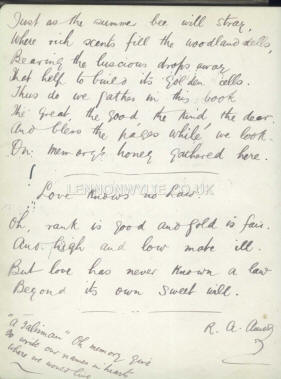 Just as the summer bee will stray,
Where rich scents fill the woodland dells,
Bearing the luscious drops away
That help to build its golden cells.
Thus do we gather in this book
The great, the good, the kind, the dear
And bless the pages while we look
On memory's honey gathered here.
Love knows no law.
LENNONWYLIE.CO.UK
Oh, rank is good and gold is fair.
And high and low mate ill.
But love has never known a law
Beyond its own sweet will.
R. A.
"A Talisman" Oh memory give
To write our names in hearts
where we would live